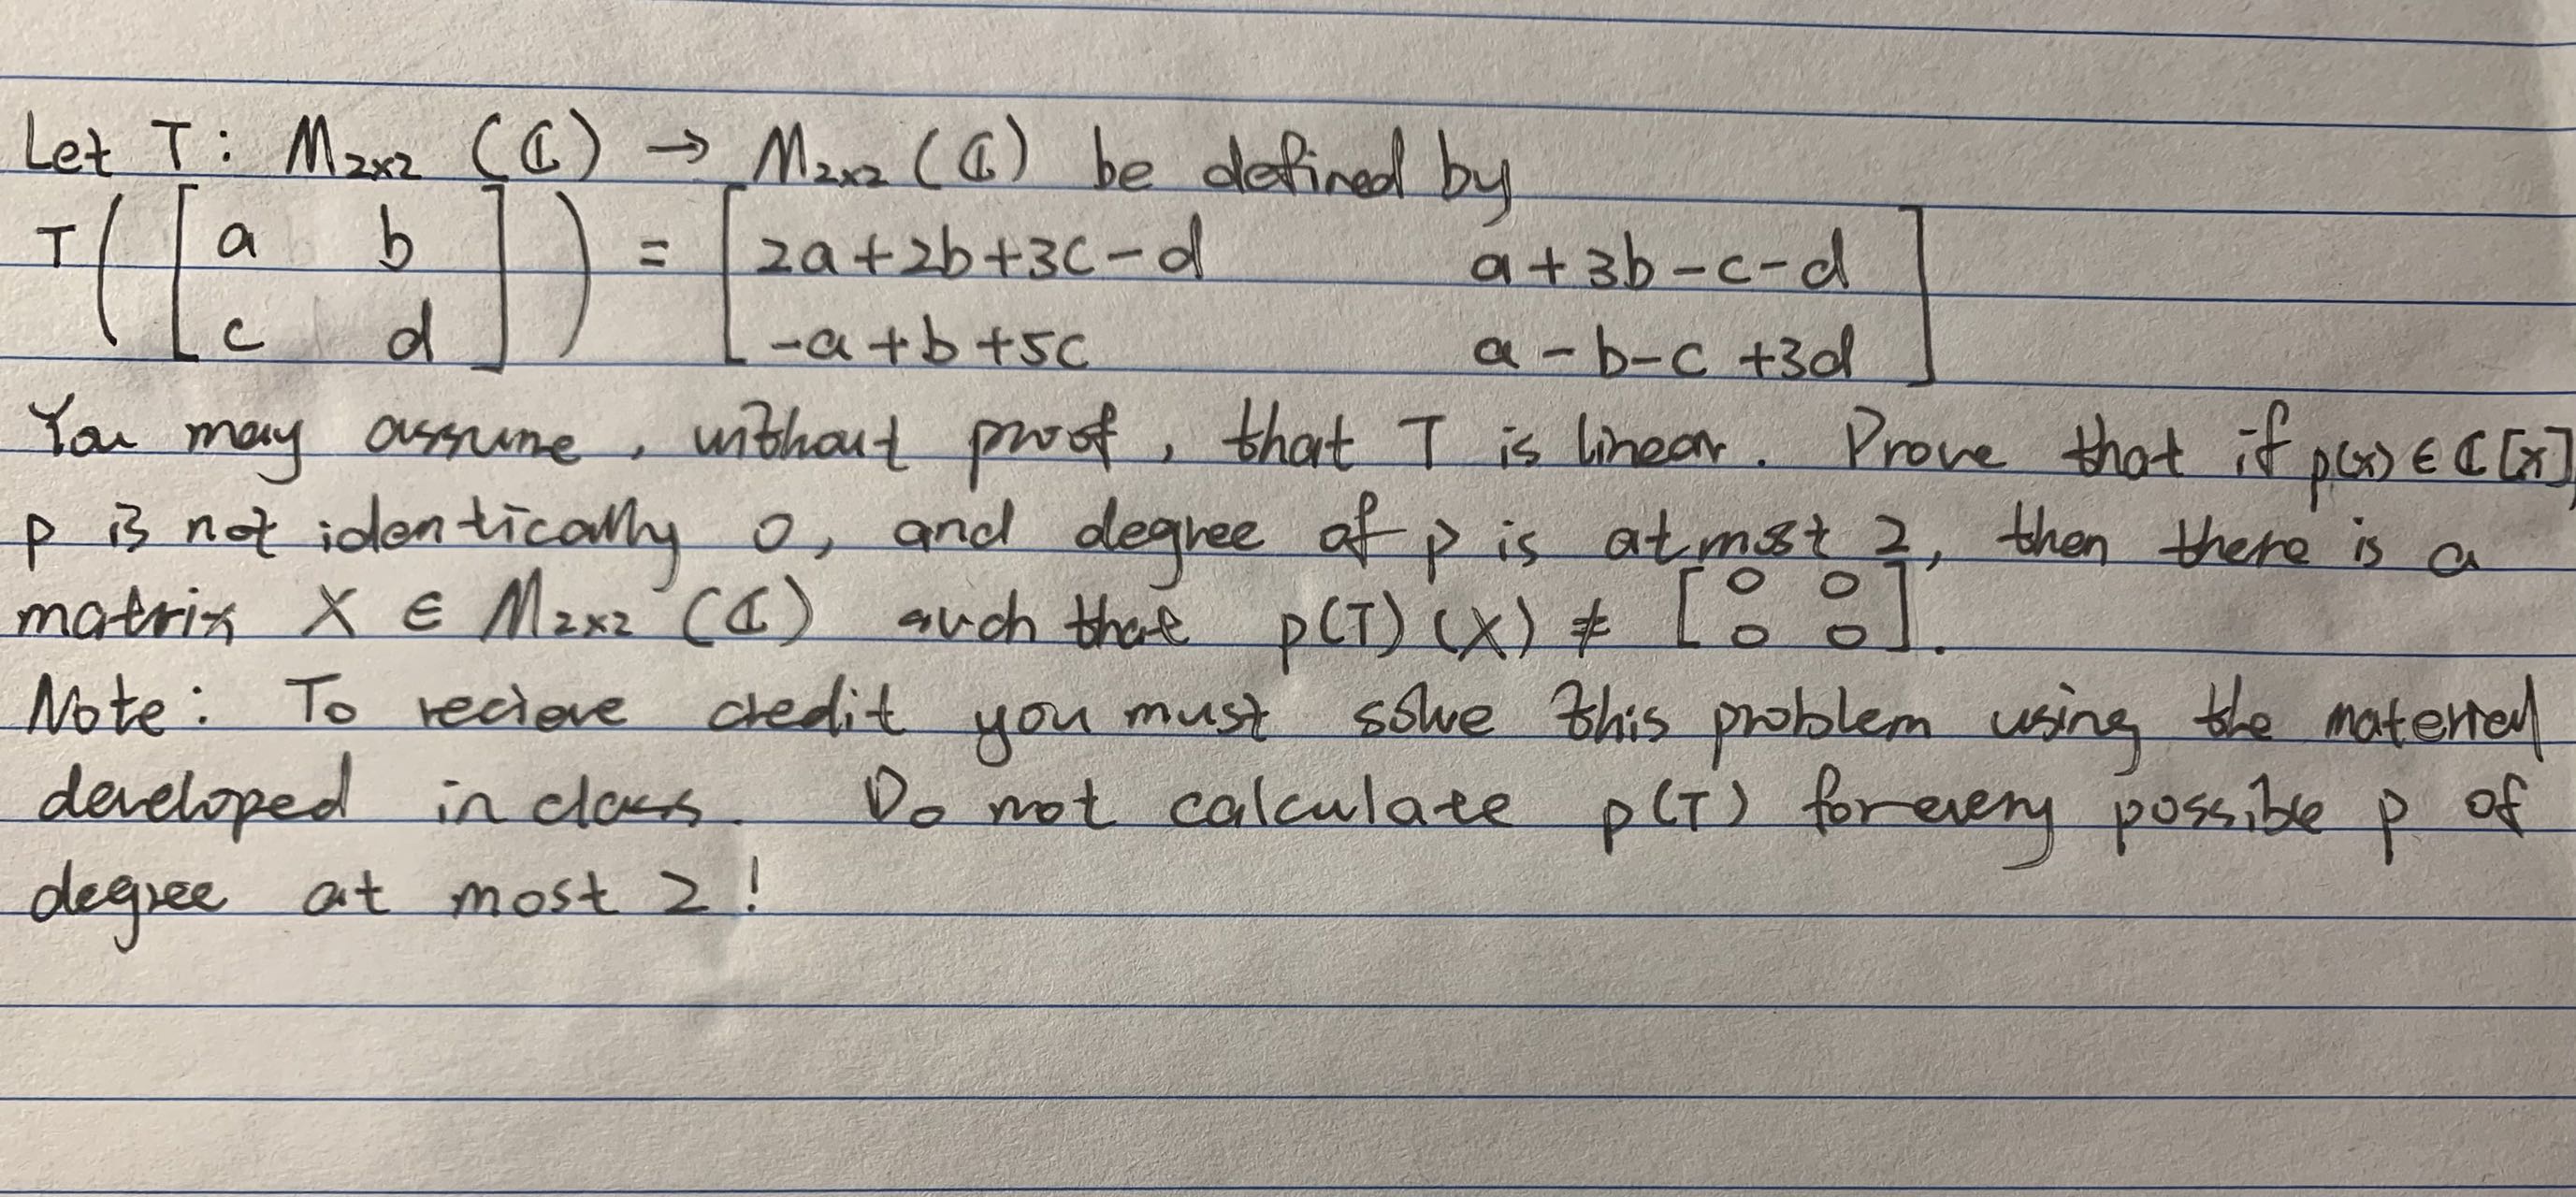 Let T: M₂ₓ₂ (ℂ) → M₂ₓ₂ (ℂ) be defined by
T([a b; c d]) = [2a+2b+3c-d a+3b-c-d; -a+b+5c a-b-c+3d]
You may assume, without proof, that T is linear. Prove that if p(x) ∈ ℂ[x],
p is not identically 0, and degree of p is at most 2, then there is a
matrix X ∈ M₂ₓ₂ (ℂ) such that p(T)(X) ≠ [0 0; 0 0].
Note: To recieve credit you must solve this problem using the material
developed in class. Do not calculate p(T) for every possible p of
degree at most 2!